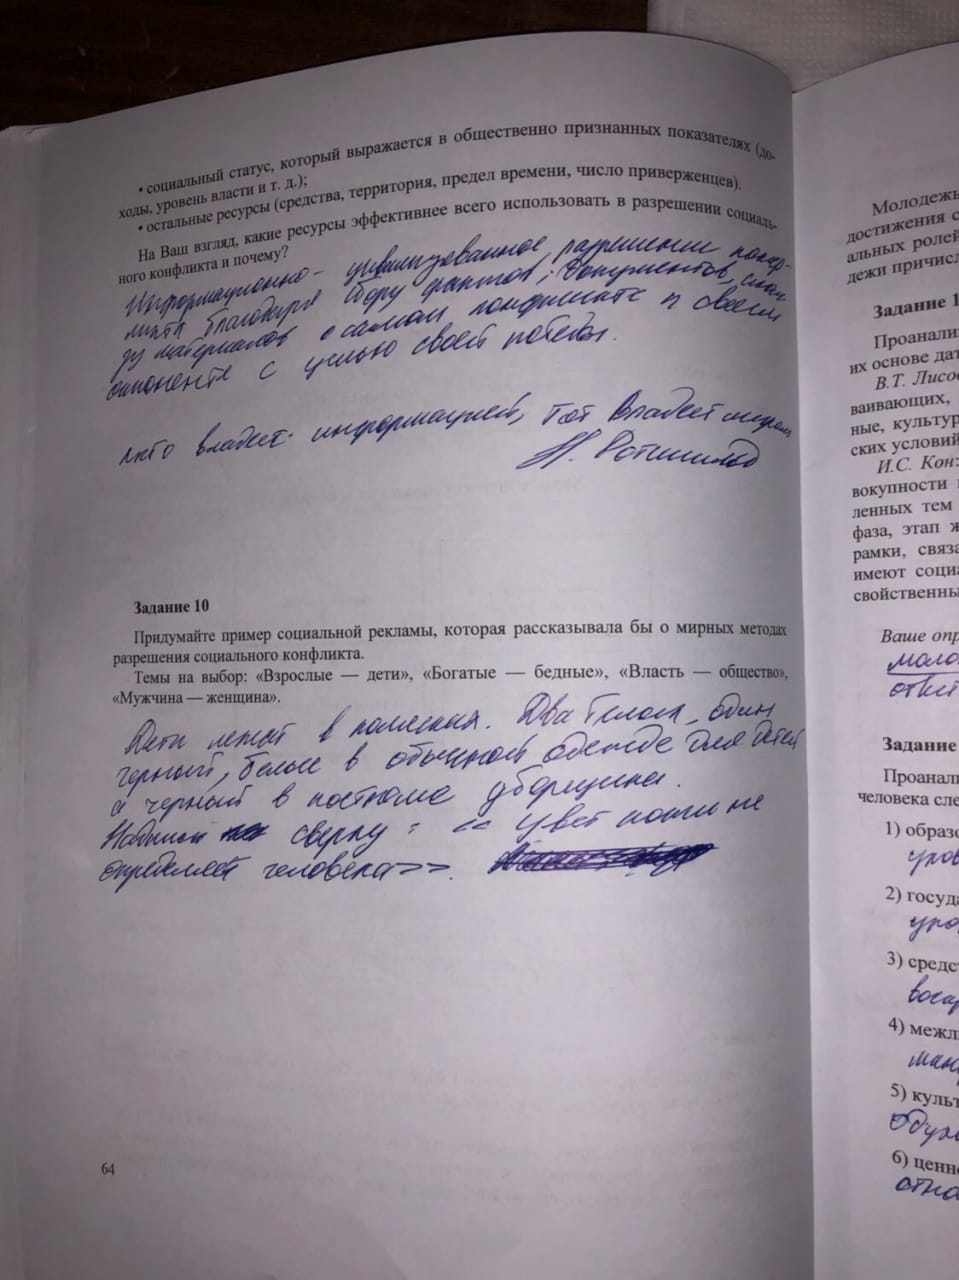 • социальный статус, который выражается в общественно признанных показателях (до-
ходы, уровень власти и т. д.);
• остальные ресурсы (средства, территория, предел времени, число приверженцев).
На Ваш взгляд, какие ресурсы эффективнее всего использовать в разрешении социаль-
ного конфликта и почему?
Информационно- цивилизованное разрешение конф-
ликта благодаря сбору фактов, документов,
ду материалов о самом конфликте и своем
оппоненте с целью своей победы.
кто владеет информацией, тот владеет миром
Н. Ротшильд
Задание 10
Придумайте пример социальной рекламы, которая рассказывала бы о мирных методах
разрешения социального конфликта.
Темы на выбор: «Взрослые — дети», «Богатые — бедные», «Власть — общество»,
«Мужчина — женщина».
Дети лежат в коляске. Два белых, один
черный, белые в обычной одежде для детей
а черный в костюме уборщика.
Надпись сверху: «Цвет кожи не
определяет человека».
64
Молодежь
достижения с
альных ролей
дежи причисл
Задание 1
Проанали
их основе дат
В.Т. Лисов
ваивающих,
ные, культур
ских условий
И.С. Кон:
вокупности
ленных тем
фаза, этап ж
рамки, связа
имеют социа
свойственны
Ваше опр
моло
ответ
Задание
Проанали
человека сле
1) образо
уров
2) госуда
уро
3) средс
4) межл
5) культ
6) ценно
отно